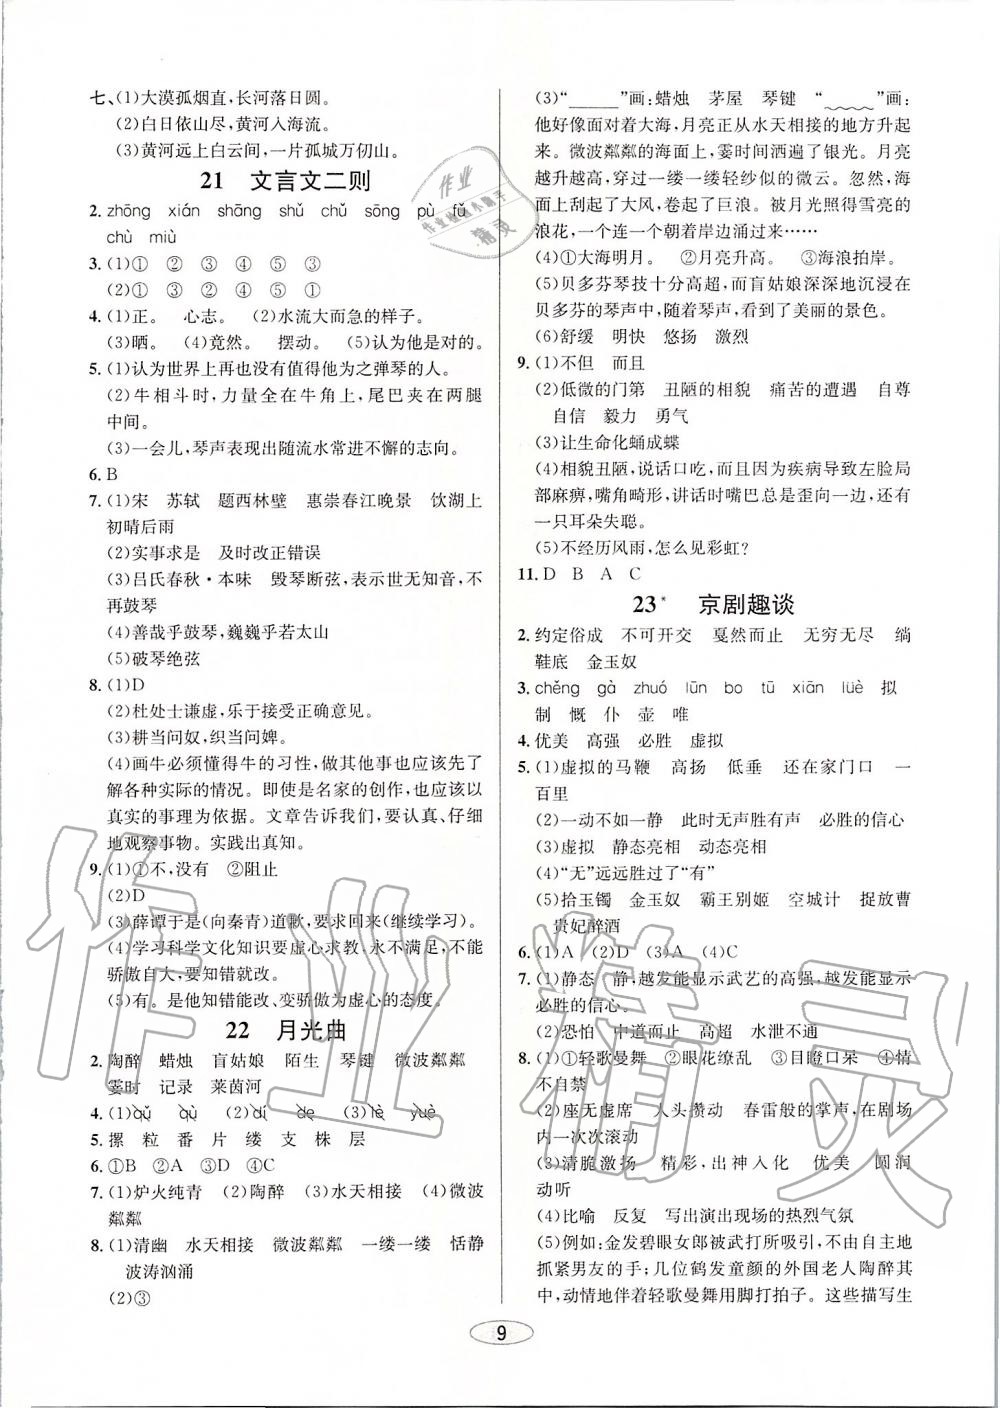 七、(1)大漠孤烟直,长河落日圆。
(2)白日依山尽,黄河入海流。
(3)黄河远上白云间,一片孤城万仞山。
21 文言文二则
2. zhōng xián shāng shǔ chǔ sōng pù fǔ
chù miù
3. (1)① ② ③ ④ ⑤ ③
(2)① ② ③ ④ ⑤ ①
4. (1)正。 心志。 (2)水流大而急的样子。
(3)晒。 (4)竟然。 摆动。 (5)认为他是对的。
5. (1)认为世界上再也没有值得他为之弹琴的人。
(2)牛相斗时,力量全在牛角上,尾巴夹在两腿
中间。
(3)一会儿,琴声表现出随流水常进不懈的志向。
6. B
7. (1)宋 苏轼 题西林壁 惠崇春江晚景 饮湖上
初晴后雨
(2)实事求是 及时改正错误
(3)吕氏春秋·本味 毁琴断弦,表示世无知音,不
再鼓琴
(4)善哉乎鼓琴,巍巍乎若太山
(5)破琴绝弦
8. (1)D
(2)杜处士谦虚,乐于接受正确意见。
(3)耕当问奴,织当问婢。
(4)画牛必须懂得牛的习性,做其他事也应该先了
解各种实际的情况。即使是名家的创作,也应该以
真实的事理为依据。文章告诉我们,要认真、仔细
地观察事物。实践出真知。
9. (1)①不,没有 ②阻止
(2)D
(3)薛谭于是(向秦青)道歉,要求回来(继续学习)。
(4)学习科学文化知识要虚心求教,永不满足,不能
骄傲自大,要知错就改。
(5)有。是他知错能改、变骄傲为虚心的态度。
22 月光曲
2. 陶醉 蜡烛 盲姑娘 陌生 琴键 微波粼粼
霎时 记录 莱茵河
4. (1)qǔ qù (2)dí de (3)lè yuè
5. 摞 粒 番 片 缕 支 株 层
6. ①B ②A ③D ④C
7. (1)炉火纯青 (2)陶醉 (3)水天相接 (4)微波
粼粼
8. (1)清幽 水天相接 微波粼粼 一缕一缕 恬静
波涛汹涌
(2)③
(3)“______”画:蜡烛 茅屋 琴键 “______”画:
他好像面对着大海,月亮正从水天相接的地方升起
来。微波粼粼的海面上,霎时间洒遍了银光。月亮
越升越高,穿过一缕一缕轻纱似的微云。忽然,海
面上刮起了大风,卷起了巨浪。被月光照得雪亮的
浪花,一个连一个朝着岸边涌过来……
(4)①大海明月。 ②月亮升高。 ③海浪拍岸。
(5)贝多芬琴技十分高超,而盲姑娘深深地沉浸在
贝多芬的琴声中,随着琴声,看到了美丽的景色。
(6)舒缓 明快 悠扬 激烈
9. (1)不但 而且
(2)低微的门第 丑陋的相貌 痛苦的遭遇 自尊
自信 毅力 勇气
(3)让生命化蛹成蝶
(4)相貌丑陋,说话口吃,而且因为疾病导致左脸局
部麻痹,嘴角畸形,讲话时嘴巴总是歪向一边,还有
一只耳朵失聪。
(5)不经历风雨,怎么见彩虹?
11. D B A C
23* 京剧趣谈
2. 约定俗成 不可开交 戛然而止 无穷无尽 绱
鞋底 金玉奴
3. chěng gà zhuó lūn bo tū xiān lüè 拟
制 慨 仆 壶 唯
4. 优美 高强 必胜 虚拟
5. (1)虚拟的马鞭 高扬 低垂 还在家门口 一
百里
(2)一动不如一静 此时无声胜有声 必胜的信心
(3)虚拟 静态亮相 动态亮相
(4)“无”远远胜过了“有”
(5)拾玉镯 金玉奴 霸王别姬 空城计 捉放曹
贵妃醉酒
6. (1)A (2)D (3)A (4)C
7. (1)静态 静,越发能显示武艺的高强,越发能显示
必胜的信心。
(2)恐怕 中道而止 高超 水泄不通
8. (1)①轻歌曼舞 ②眼花缭乱 ③目瞪口呆 ④情
不自禁
(2)座无虚席 人头攒动 春雷般的掌声,在剧场
内一次次滚动
(3)清脆激扬 精彩,出神入化 优美 圆润
动听
(4)比喻 反复 写出演出现场的热烈气氛
(5)例如:金发碧眼女郎被武打所吸引,不由自主地
抓紧男友的手;几位鹤发童颜的外国老人陶醉其
中,动情地伴着轻歌曼舞用脚打拍子。这些描写生
9
作业精灵